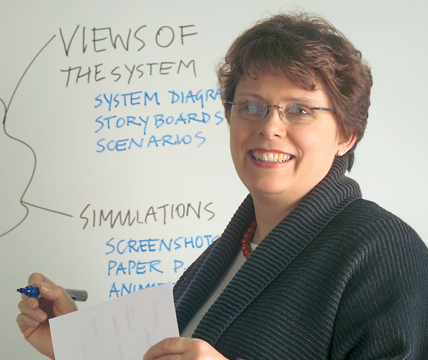 VIEWS OF
THE SYSTEM
SYSTEM
STORYBOARDS
SCENARIOS
SIMULATIONS
SCREENSHOTS
PAPER